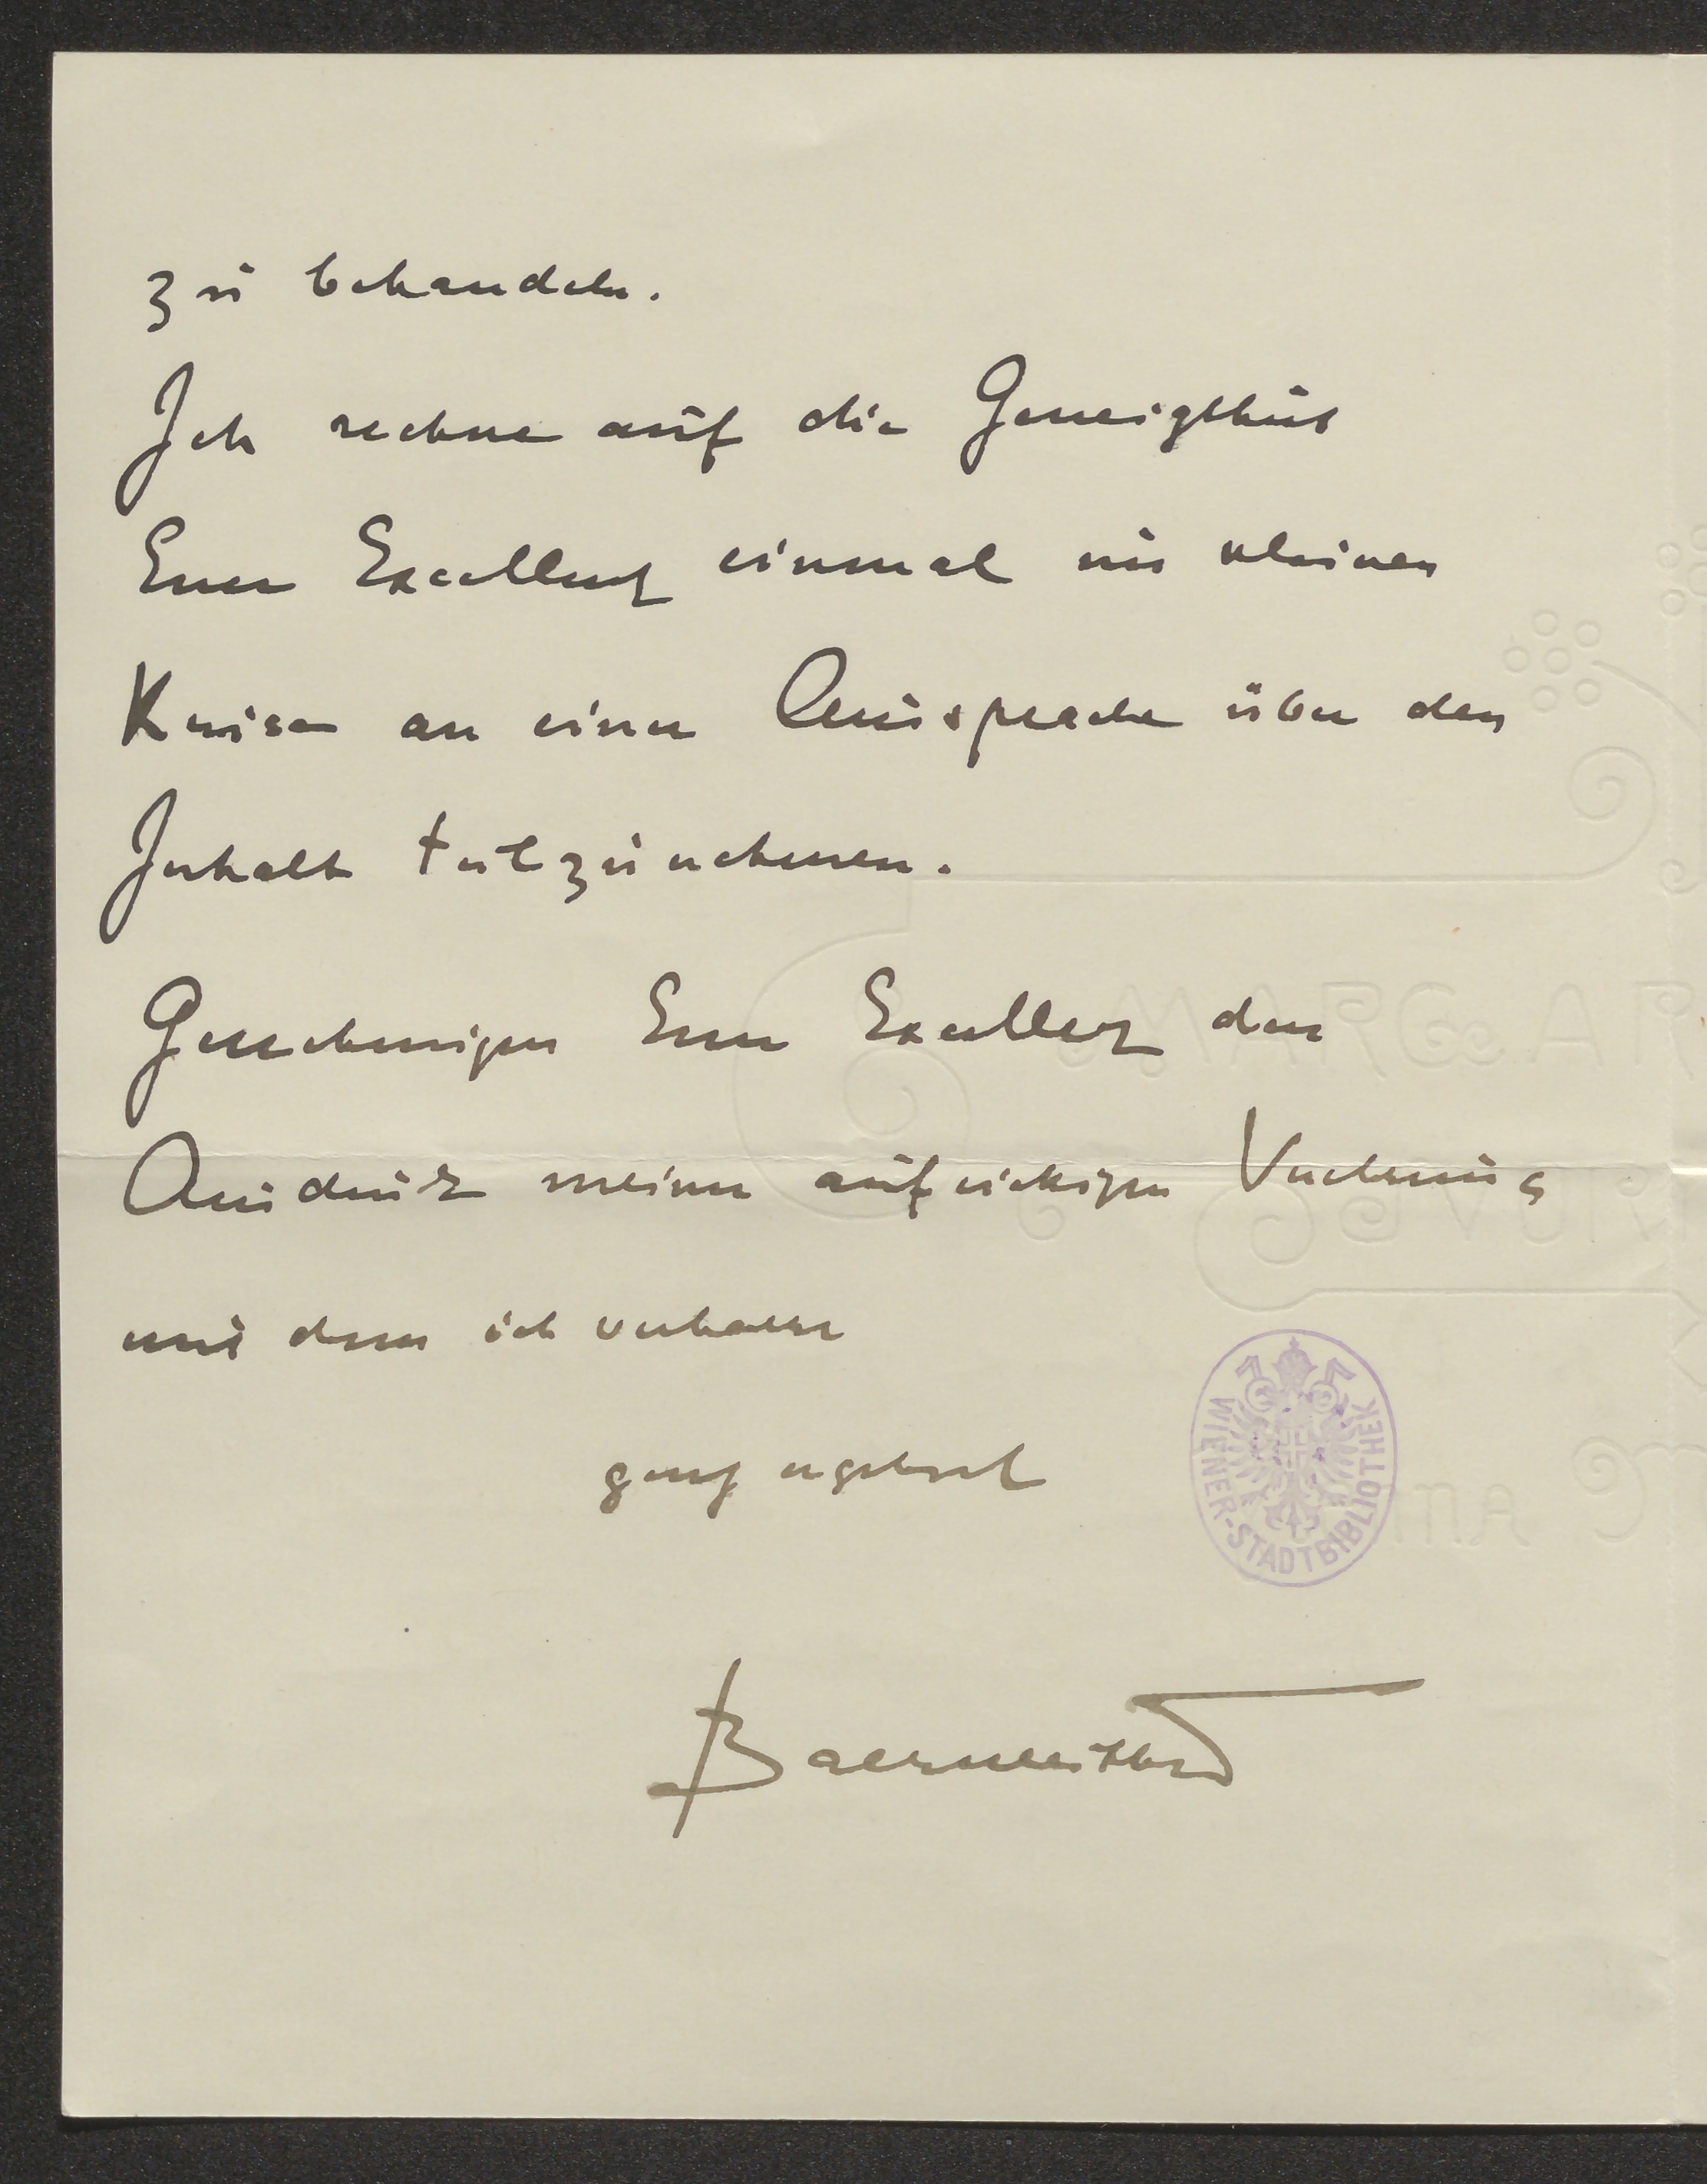 zu behandeln.
Ich rechne auf die Geneigtheit
Euer Excellenz einmal im kleinen
Kreise an einer Aussprache über den
Inhalt teilzunehmen.
Genehmigen Euer Excellenz den
Ausdruck meiner aufrichtigen Verehrung
mit dem ich verharre
ganz ergebenst
WIENER-STADTBIBLIOTHEK
Baernreither